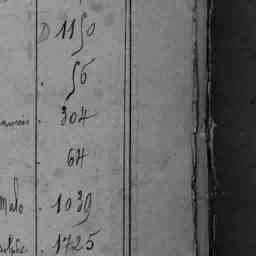 D 1150
. 56
. 304
. 64
Malo . 1039
. 1725